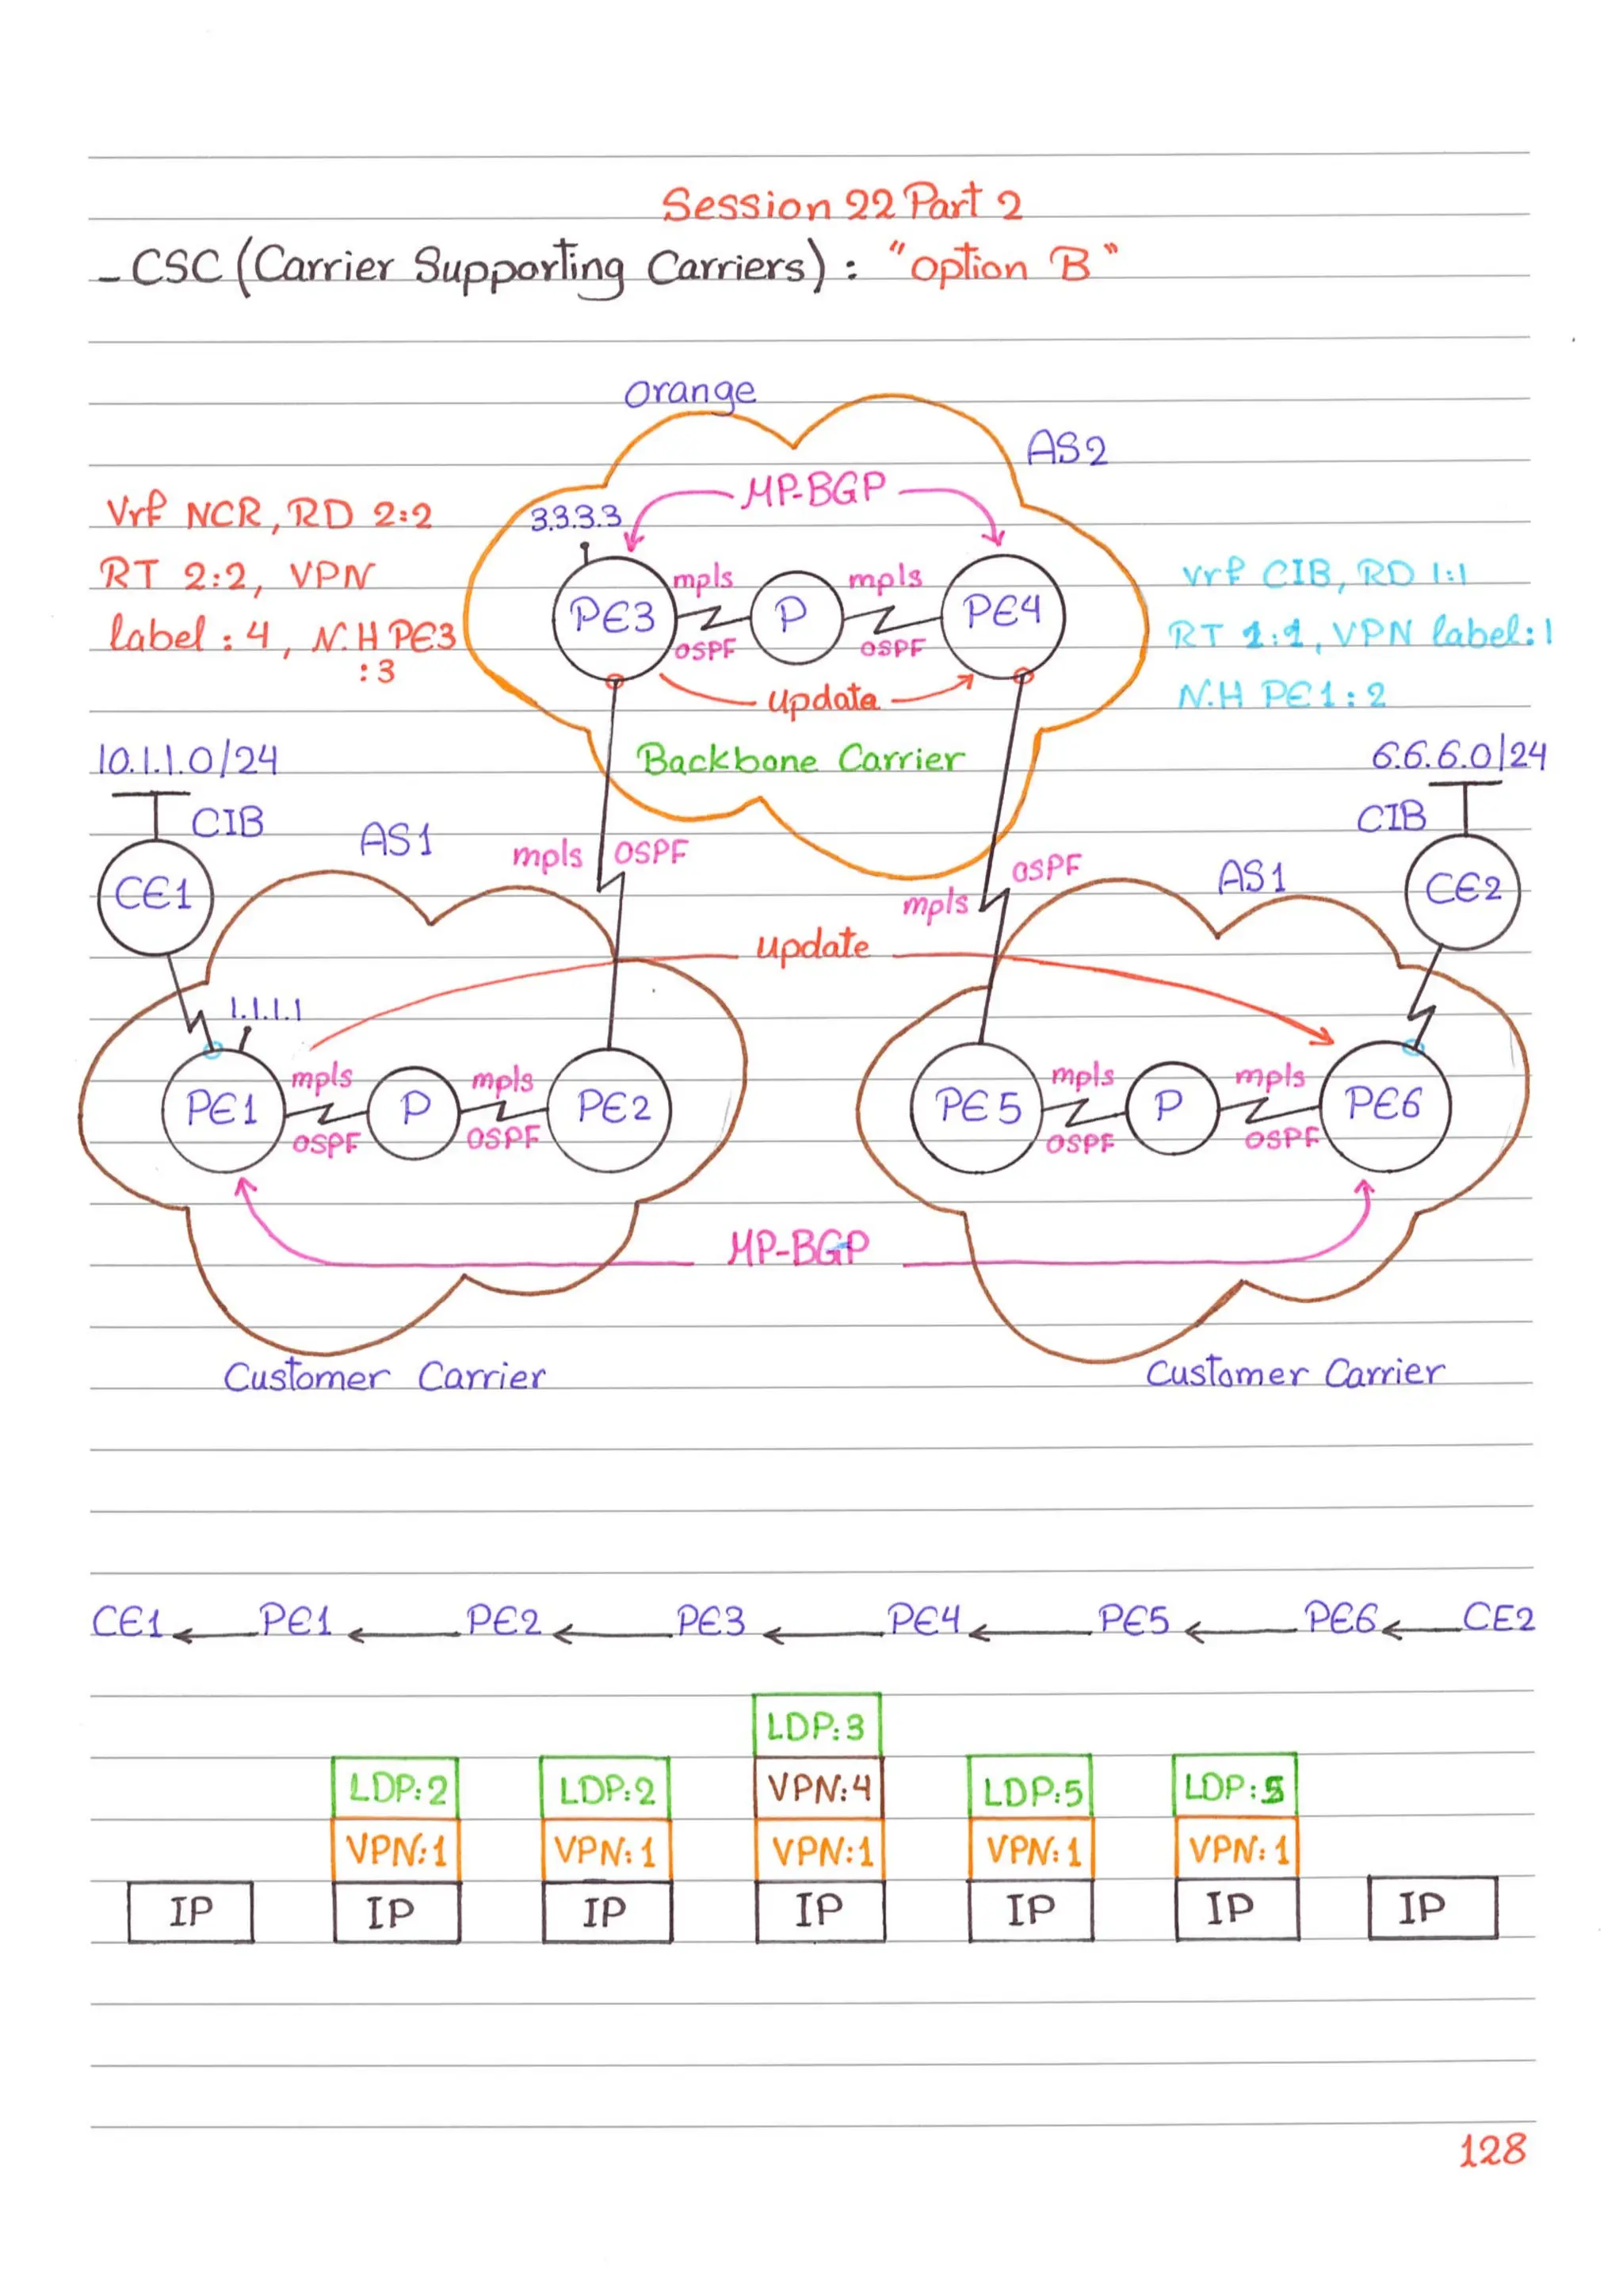 Session 22 Part 2
- CSC (Carrier Supporting Carriers) : "Option B"
Orange
AS2
MP-BGP
Vrf NCR, RD 2:2
RT 2:2, VPN
label : 4, N.H PE3
: 3
3.3.3.3
PE3
mpls
OSPF
P
mpls
OSPF
PE4
update
Backbone Carrier
vrf CIB, RD 1:1
RT 1:1, VPN label:1
N.H PE1: 2
10.1.1.0/24
CIB
CE1
AS1
mpls
OSPF
OSPF
mpls
AS1
6.6.6.0/24
CIB
CE2
update
1.1.1.1
PE1
mpls
OSPF
P
mpls
OSPF
PE2
PE5
mpls
OSPF
P
mpls
OSPF
PE6
MP-BGP
Customer Carrier
Customer Carrier
CE1 PE1 PE2 PE3 PE4 PE5 PE6 CE2
LDP:3
LDP:2 LDP:2 VPN:4 LDP:5 LDP:5
VPN:1 VPN:1 VPN:1 VPN:1 VPN:1
IP IP IP IP IP IP IP
128